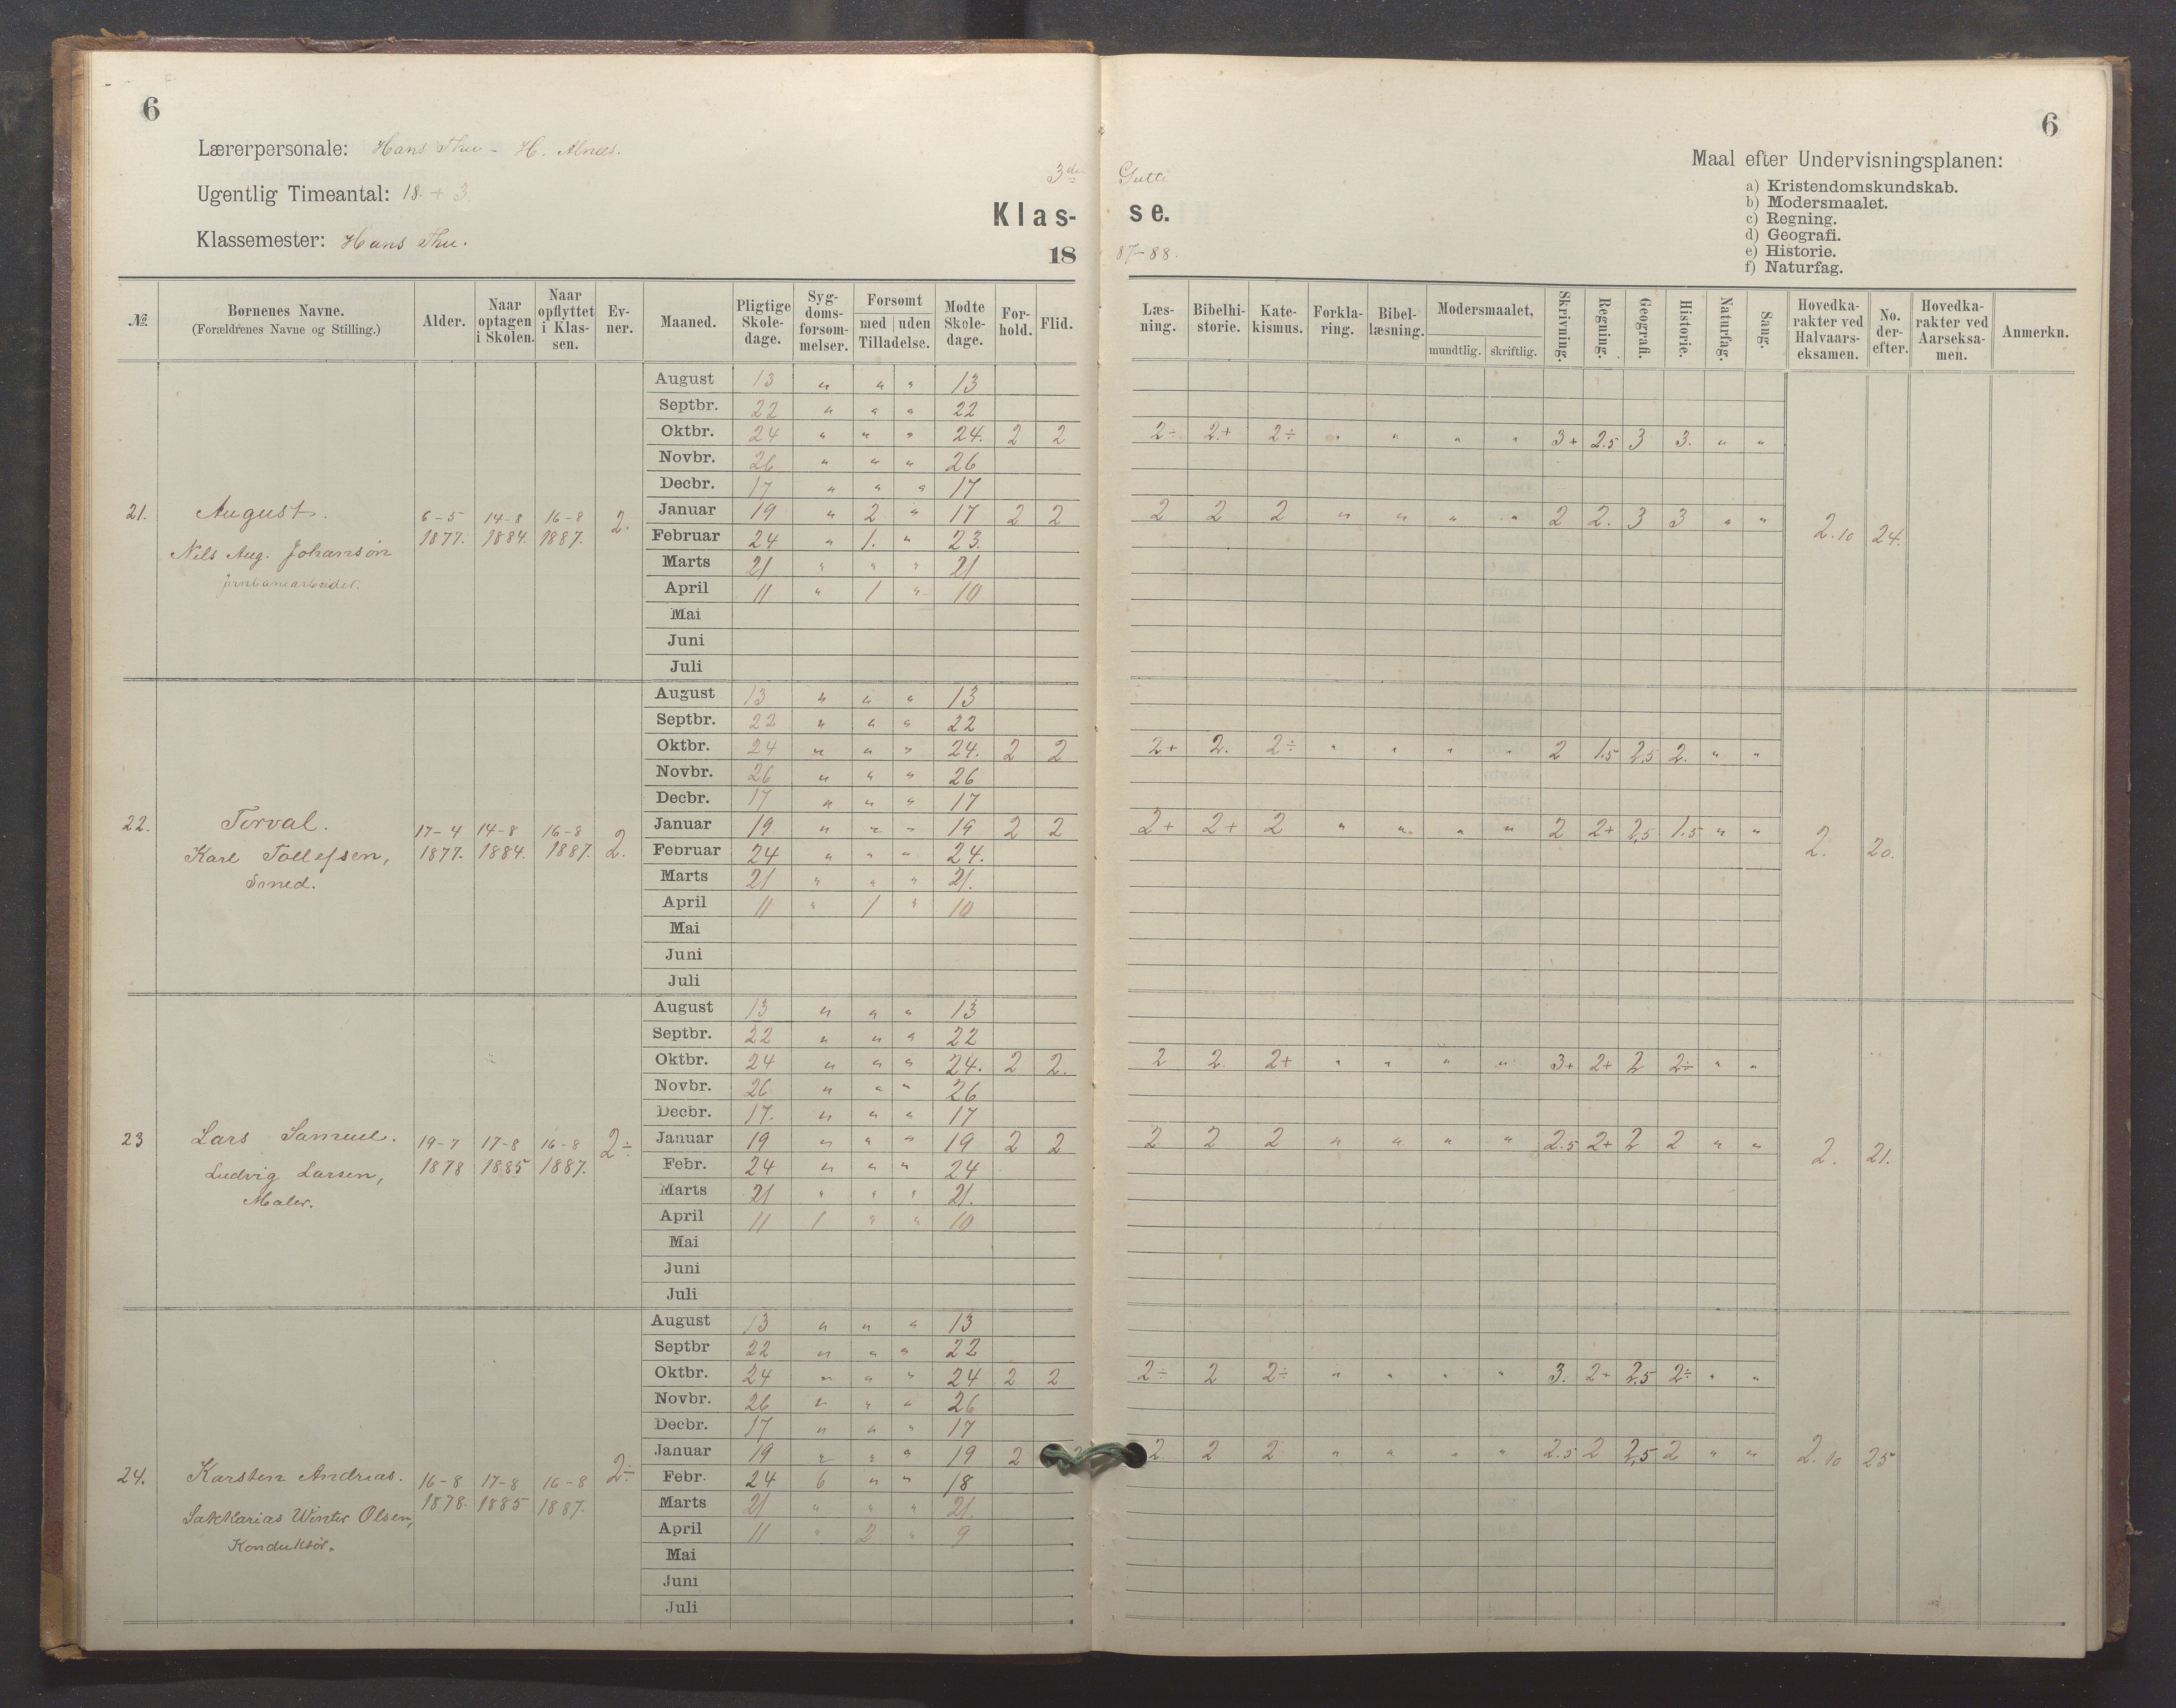 6
6
Lærerpersonale: Hans Thu - H. Alnæs.
Ugentlig Timeantal: 18. + 3.
Klassemester: Hans Thu.
3die Gutte
Klas- se.
18 87-88.
Maal efter Undervisningsplanen:
a) Kristendomskundskab.
b) Modersmaalet.
c) Regning.
d) Geografi.
e) Historie.
f) Naturfag.
№. Børnenes Navne. (Forældrenes Navne og Stilling.) Alder. Naar optagen i Skolen. Naar opflyttet i Klassen. Evner. Maaned. Pligtige Skoledage. Sygdomsforsømmelser. Forsømt med uden Tilladelse. Mødte Skoledage. Forhold. Flid. Læsning. Bibelhistorie. Katekismus. Forklaring. Bibellæsning. Modersmaalet, mundtlig. skriftlig. Skrivning. Regning. Geografi. Historie. Naturfag. Sang. Hovedkarakter ved Halvaarseksamen. No. derefter. Hovedkarakter ved Aarseksamen. Anmerkn.
August 13 " " " 13
Septbr. 22 " " " 22
Oktbr. 24 " " " 24. 2 2 2÷ 2+ 2÷ " " " " 3+ 2.5 3 3. " "
Novbr. 26 " " " 26
Decbr. 17 " " " 17
21. August. 6-5 1877. 14-8 1884. 16-8 1887. 2.
Nils Aug. Johansón
jernbanearbeider.
Januar 19 " 2 " 17 2 2 2 2 2 " " " " 2 2. 3 3 " " 2.10 24.
Februar 24 " 1. " 23.
Marts 21 " " " 21
April 11 " 1 " 10
Mai
Juni
Juli
August 13 " " " 13
Septbr. 22 " " " 22
Oktbr. 24 " " " 24. 2 2 2+ 2. 2÷ " " " " 2 1.5 2,5 2. " "
Novbr. 26 " " " 26
Decbr. 17 " " " 17
22. Torval. 17-4 1877. 14-8 1884. 16-8 1887. 2.
Karl Tollefsen,
Smed.
Januar 19 " " " 19 2 2 2+ 2+ 2 " " " " 2 2+ 2,5 1.5 " " 2. 20.
Februar 24 " " " 24.
Marts 21 " " " 21.
April 11 " 1 " 10
Mai
Juni
Juli
August 13 " " " 13
Septbr. 22 " " " 22
Oktbr. 24 " " " 24. 2 2. 2 2 2+ " " " " 3+ 2+ 2 2÷ " "
Novbr. 26 " " " 26
Decbr. 17. " " " 17
23 Lars Samuel. 19-7 1878 17-8 1885 16-8 1887. 2÷
Ludvig Larsen,
Maler.
Januar 19 " " " 19 2 2 2 2 2 " " " " 2.5 2+ 2 2 " " 2. 21.
Febr. 24 " " " 24
Marts 21 " " " 21.
April 11 1 " " 10
Mai
Juni
Juli
August 13 " " " 13
Septbr 22 " " " 22
Oktbr. 24 " " " 24 2 2 2÷ 2 2÷ " " " " 3. 2+ 2.5 2÷ " "
Novbr. 26 " " " 26
Decbr. 17 " " " 17
24. Karsten Andreas. 16-8 1878. 17-8 1885 16-8 1887. 2÷
Sakkarias Winter Olsen,
Konduktør.
Januar 19 " " " 19 2 2. 2 2 " " " " 2.5 2 2,5 2 " " 2.10 25
Febr. 24 6 " " 18
Marts 21 " " " 21.
April 11 " 2 " 9
Mai
Juni
Juli